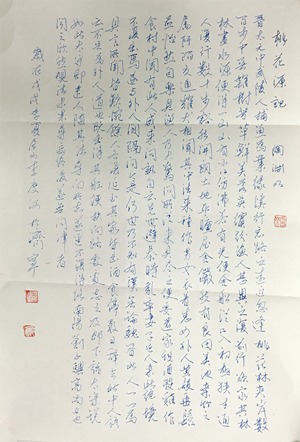 桃花源記 陶淵明
晉太元中武陵人捕魚為業緣溪行忘路之遠近忽逢桃花林夾岸數
百步中無雜樹芳草鮮美落英繽紛漁人甚異之復前行欲窮其林
林盡水源便得一山山有小口仿佛若有光便舍船從口入初極狹才通
人復行數十步豁然開朗土地平曠屋舍儼然有良田美池桑竹之
屬阡陌交通雞犬相聞其中往來種作男女衣著悉如外人黃髮垂髫
並怡然自樂見漁人乃大驚問所從來具答之便要還家設酒殺雞作
食村中聞有此人咸來問訊自云先世避秦時亂率妻子邑人來此絕境
不復出焉遂與外人間隔問今是何世乃不知有漢無論魏晉此人一一為
具言所聞皆歎惋餘人各復延至其家皆出酒食停數日辭去此中人語
云不足為外人道也既出得其船便扶向路處處志之及郡下詣太守說
如此太守即遣人隨其往尋向所志遂迷不復得路南陽劉子驥高尚士也
聞之欣然規往未果尋病終後遂無問津者
歲在戊戌 於濟寧